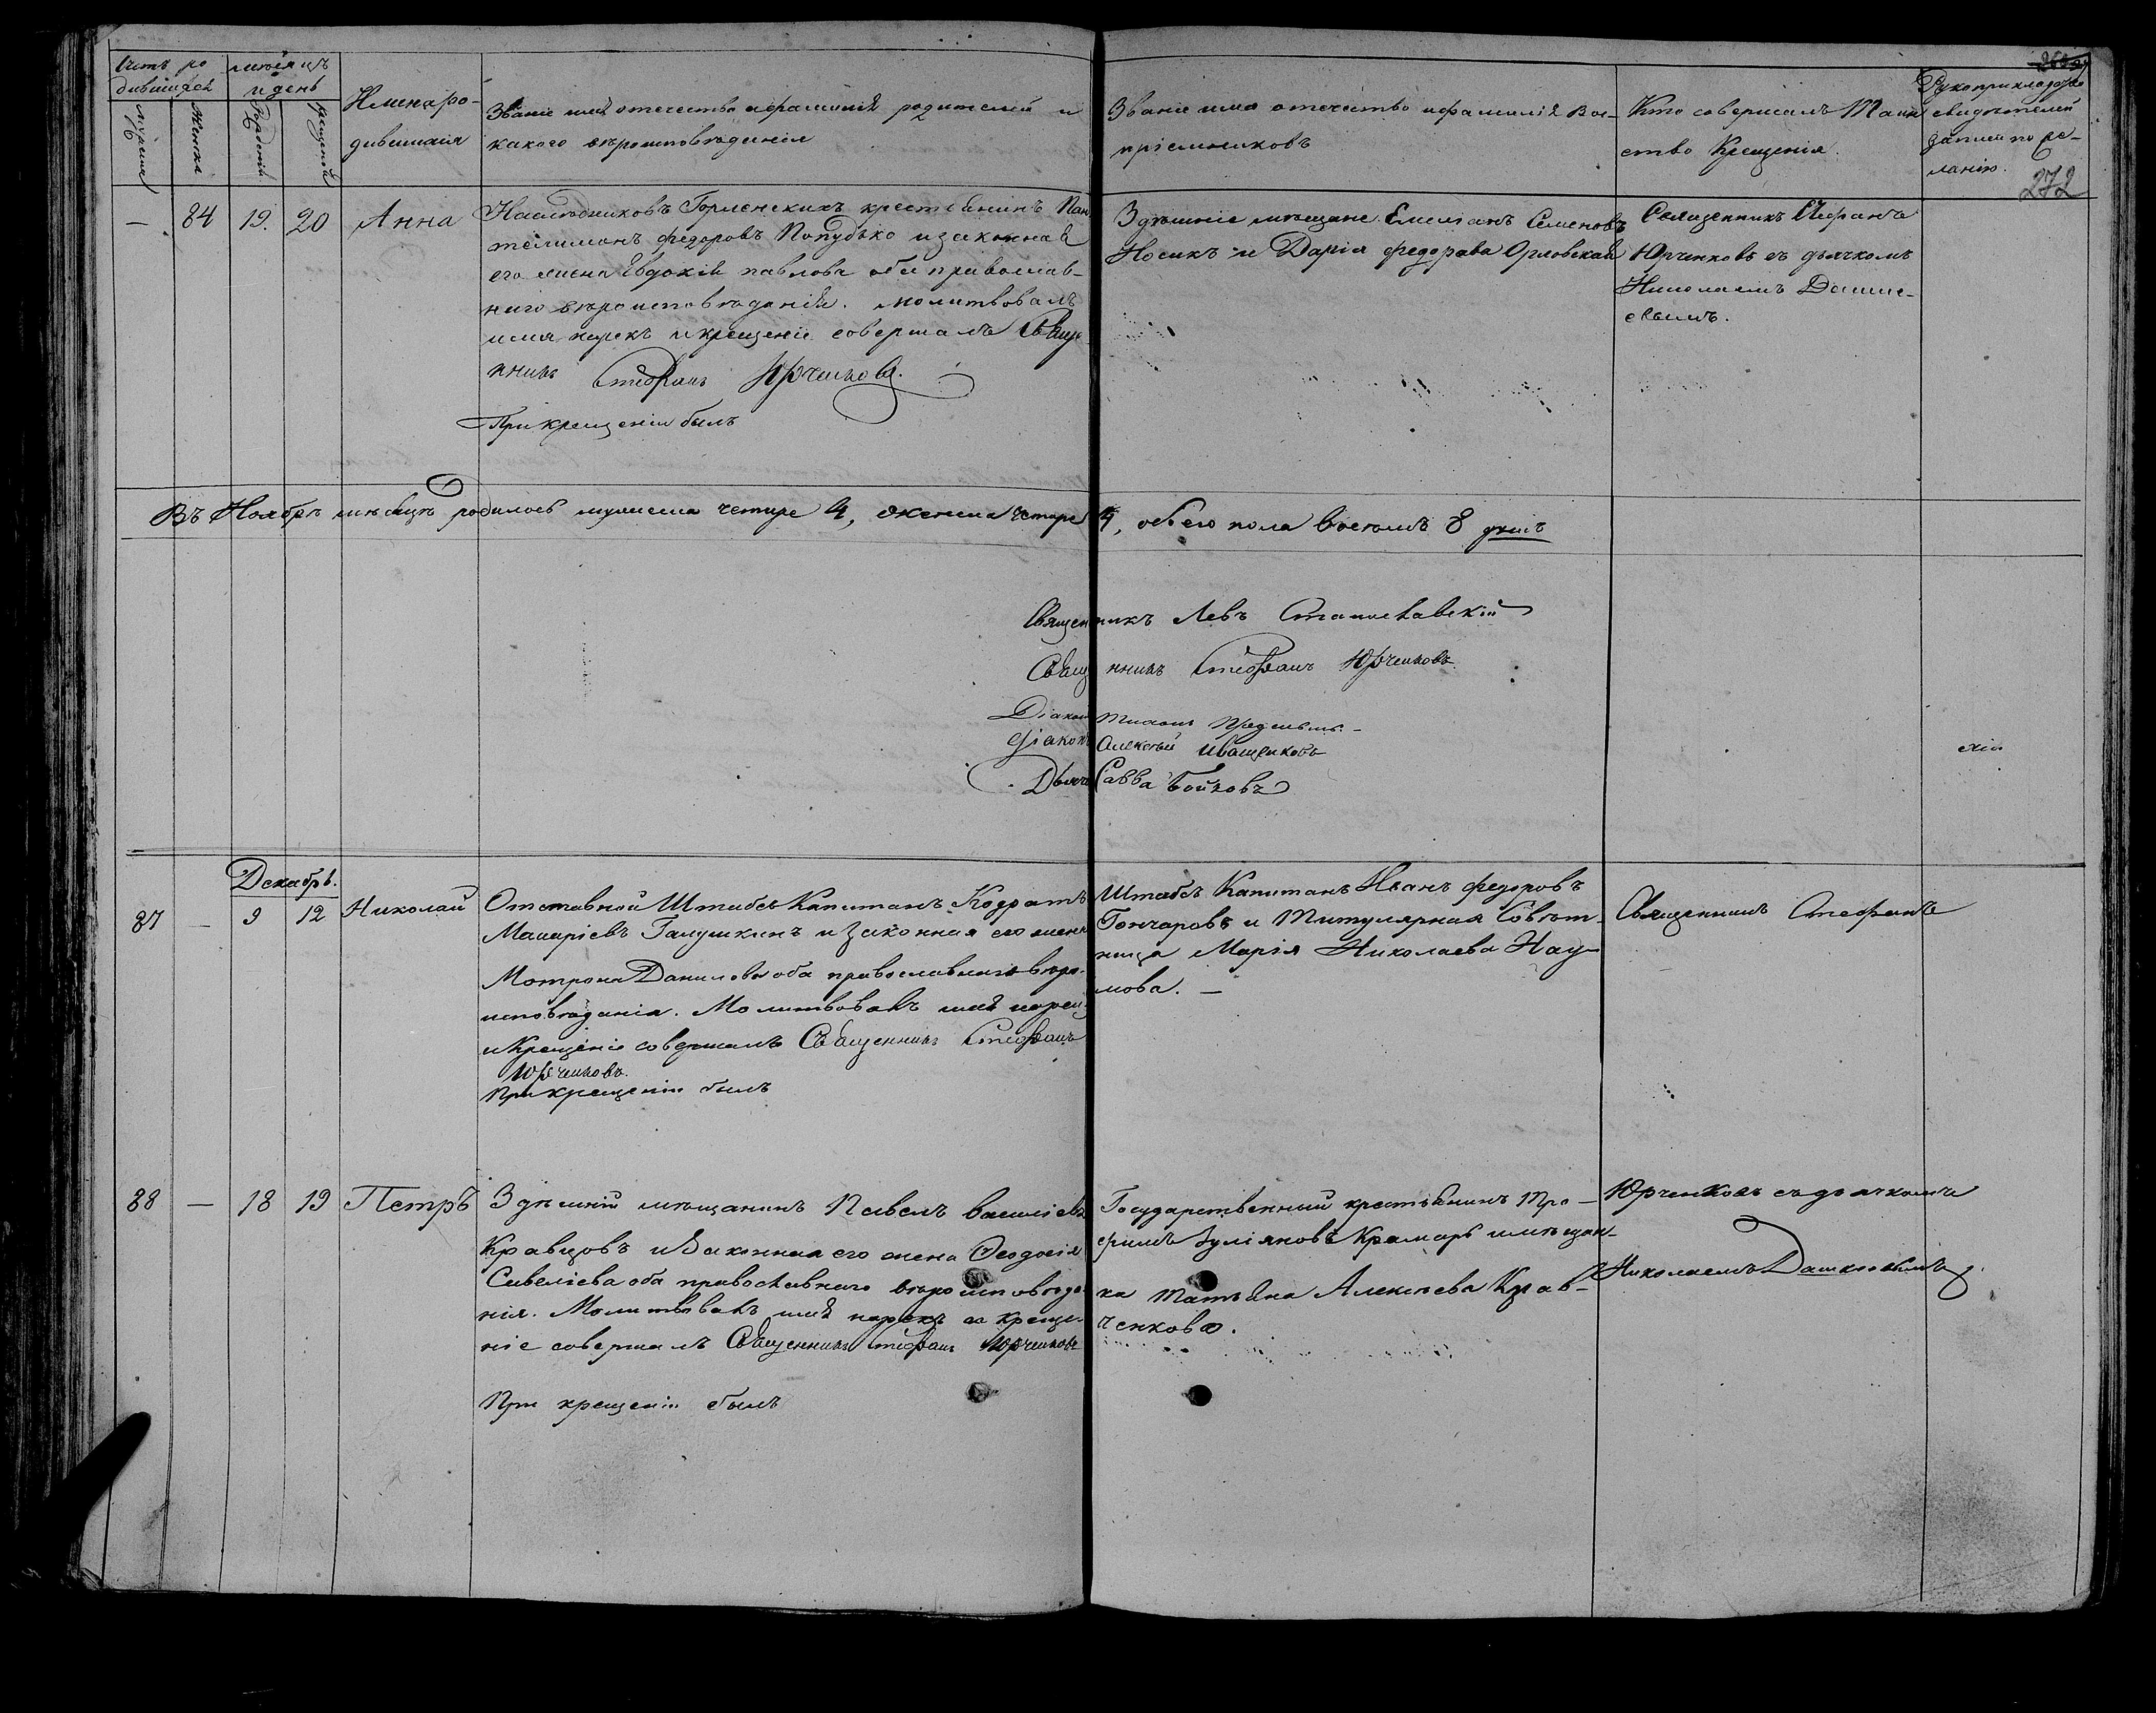 Счетъ ро
дившихся
мѣсяцъ
и день
Мужеска
Женска
Рожденія
Крещенія
Имена ро-
дившихся
Званіе имя отечество и фамилія родителей и
какого вѣроисповѣданія
Званіе имя отечество и фамилія вос-
пріемниковъ
Кто совершалъ Таин
ство Крещенія.
Рукоприкладство
свидѣтелей
записи по же-
ланію.
272
— 84 19. 20 Анна
Наслѣдниковъ Горленскихъ крестьянинъ Пан
телимонъ Федоровъ Попудько и законная
его жена Евдокія Павлова оба православ-
наго вѣроисповѣданія. Молитвовалъ
имя нарекъ и крещеніе совершалъ Свяще
нникъ Стефанъ Юрченковъ.
При крещеніи былъ
Здѣшніе мѣщане Емеліанъ Семеновъ
Носикъ и Дарія Федорова Орловская
Священникъ Стефанъ
Юрченковъ съ дьячкомъ
Николаемъ Дашке-
евымъ.
Въ Ноябрѣ мѣсяцѣ родилось мужеска четыре 4, женска четыре 4, обоего пола восемь 8 душъ
Священникъ Левъ Станиславскій
Священникъ Стефанъ Юрченковъ
Діаконъ Тихонъ
Діаконъ Алексѣй Иващенковъ
Дьячекъ Савва Бойковъ
Декабрь.
87 — 9 12 Николай
Отставной Штабсъ Капитанъ Кодратъ
Макаріевъ Галушкинъ и законная его жена
Мотрона Данилова оба православнаго вѣро-
исповѣданія. Молитвовалъ имя нарекъ
и Крещеніе совершалъ Священникъ Стефанъ
Юрченковъ.
При крещеніи былъ
Штабсъ Капитанъ Иванъ Федоровъ
Гончаровъ и Титулярная Совѣт-
ница Марія Николаева Нау-
мова. —
Священникъ Стефанъ
88 — 18 19 Петръ
Здѣшній мѣщанинъ Павелъ Василіевъ
Кравцовъ и Законная его жена Феодосія
Савеліева оба православнаго вѣроисповѣда-
нія. Молитвовалъ имя нарекъ и креще-
ніе совершалъ Священникъ Стефанъ Юрченковъ
При крещеніи былъ
Государственный крестьянинъ Тро-
фимъ Іуліяновъ Крамарь и мѣщан-
ка Татьяна Алексѣева Крав-
ченкова.
Юрченковъ съ дьячкомъ
Николаемъ Дашкеевымъ.